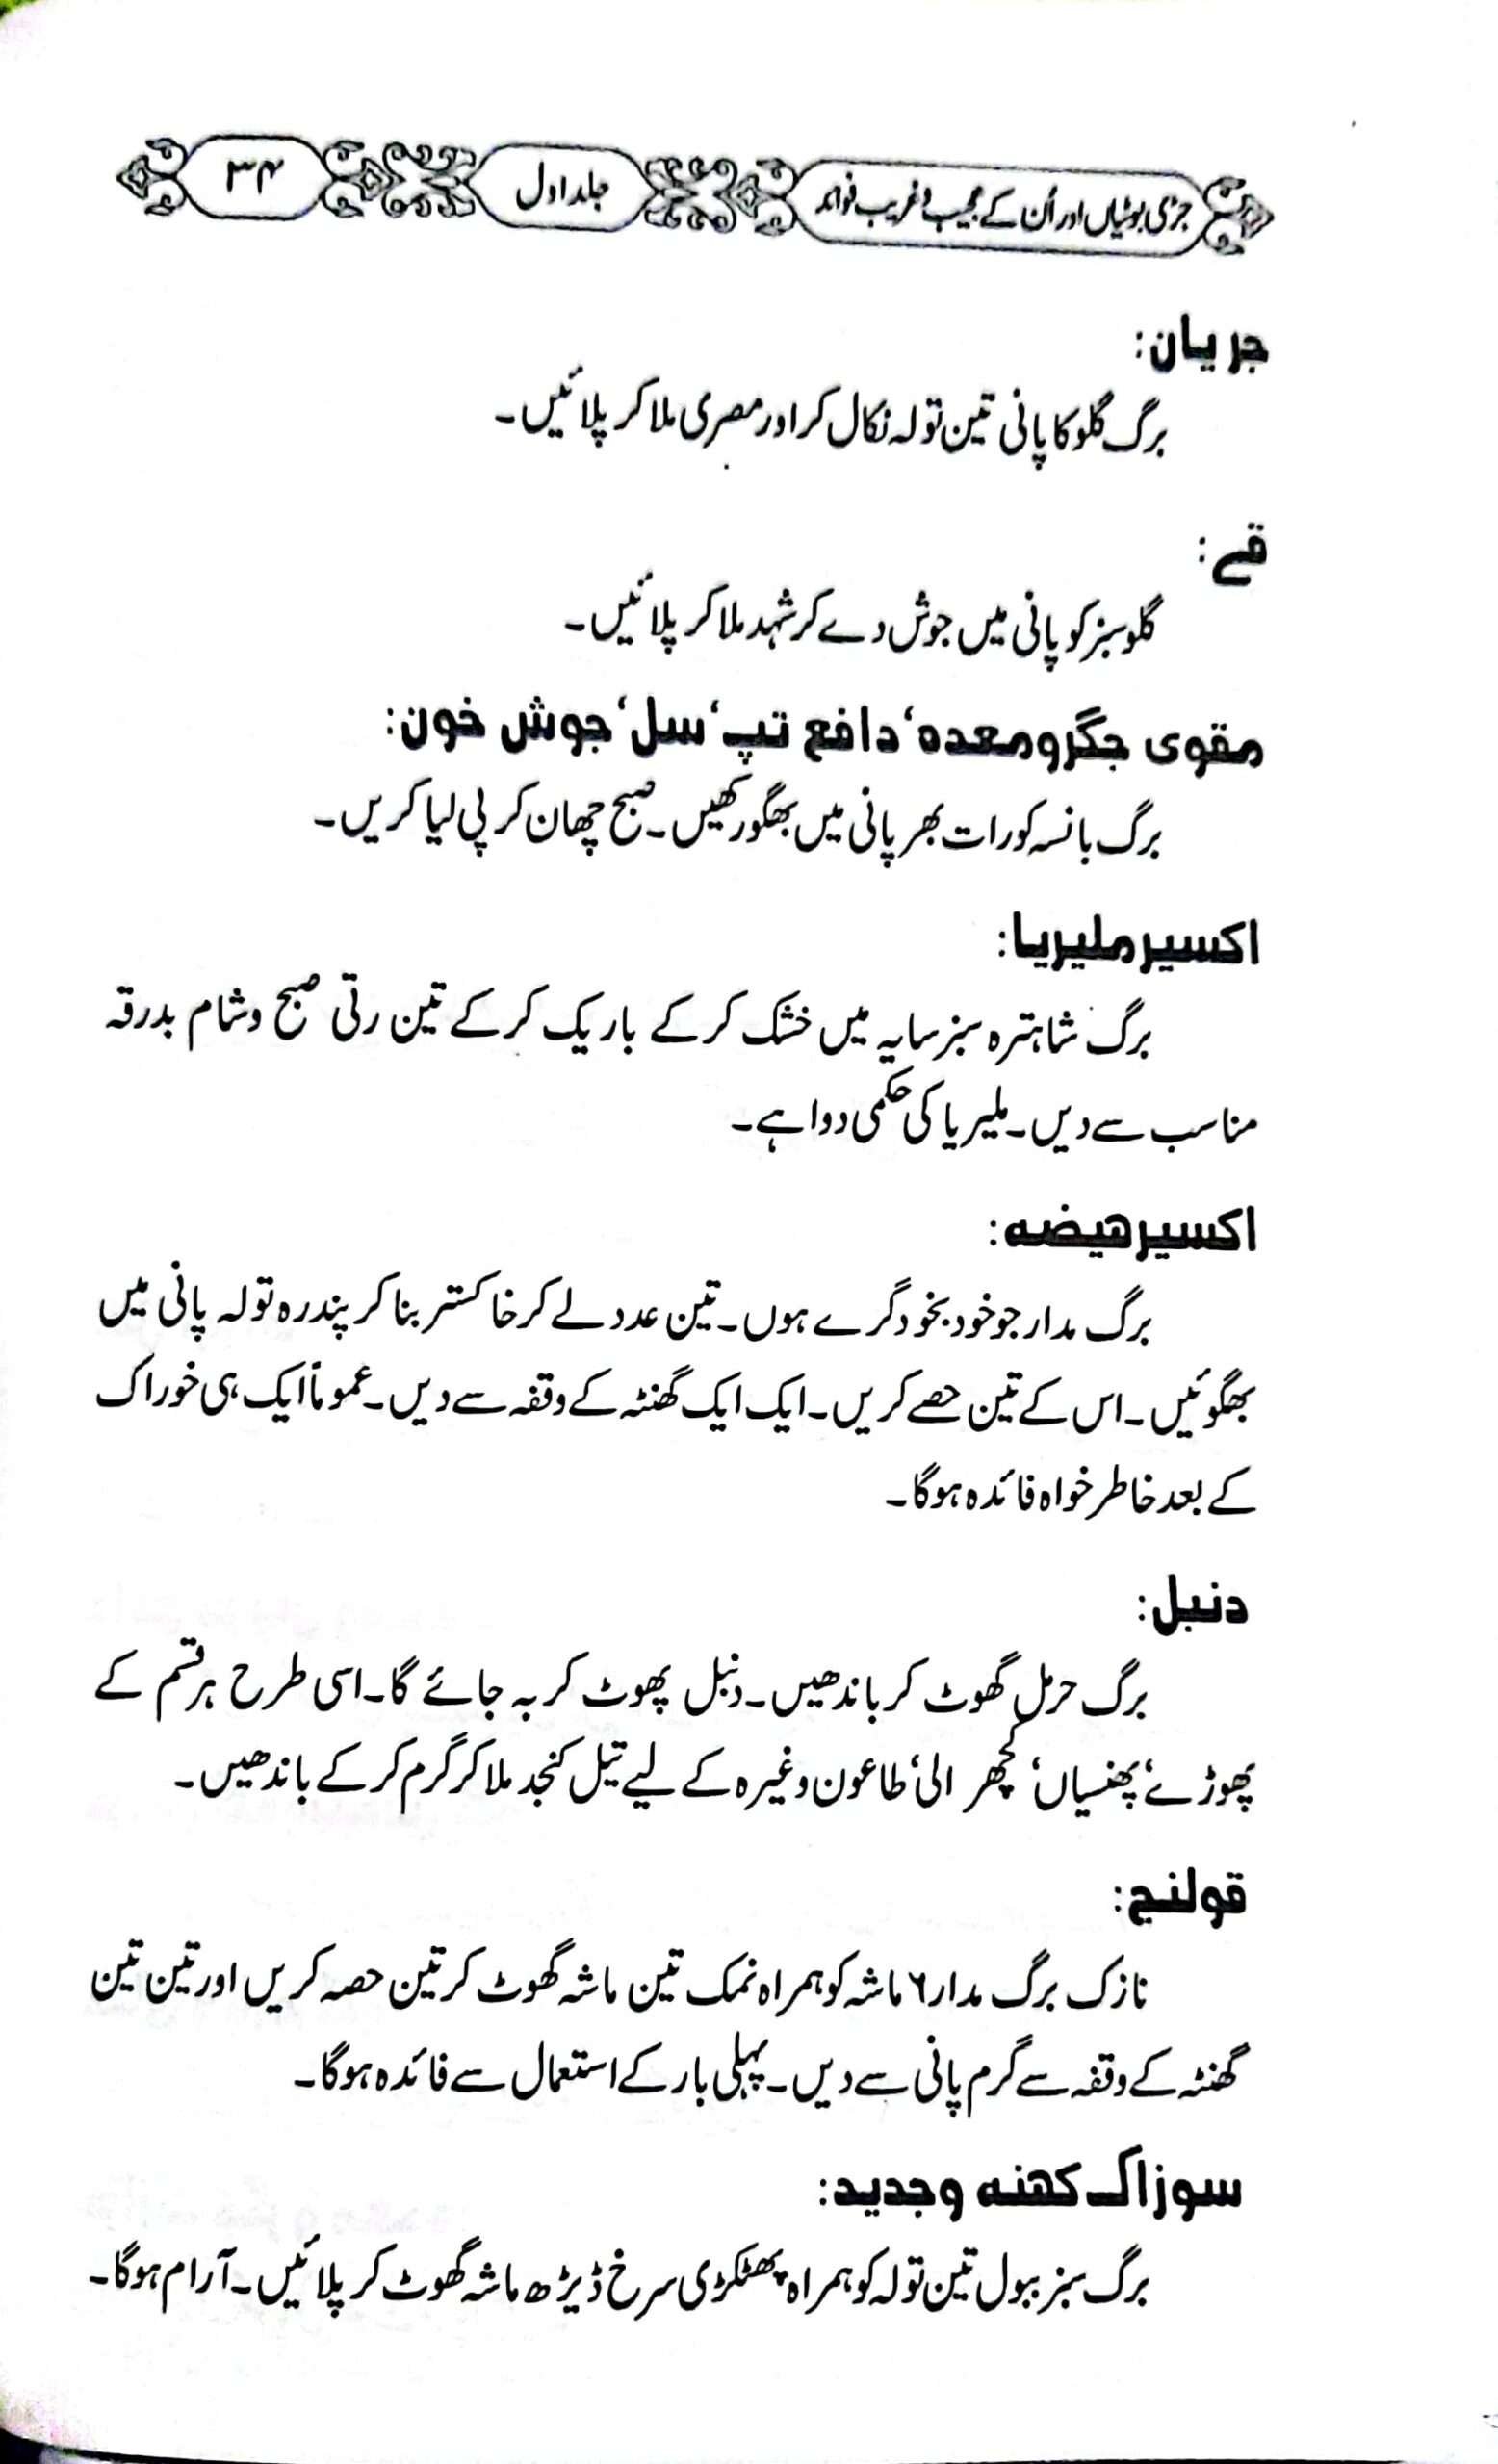 جڑی بوٹیاں اور اُن کے عجیب و غریب فوائد جلد اول ۳۴
جریان:
برگ گلو کا پانی تین تولہ نکال کر اور مصری ملا کر پلائیں۔
قے:
گلو سبز کو پانی میں جوش دے کر شہد ملا کر پلائیں۔
مقوی جگر و معدہ، دافع تپ، سل، جوش خون:
برگ بانسہ کو رات بھر پانی میں بھگو رکھیں۔ صبح چھان کر پی لیا کریں۔
اکسیر ملیریا:
برگ شاہترہ سبز سایہ میں خشک کر کے باریک کر کے تین رتی صبح و شام بدرقہ
مناسب سے دیں۔ ملیریا کی حکمی دوا ہے۔
اکسیر ھیضہ:
برگ مدار جو خود بخود گرے ہوں۔ تین عدد لے کر خاکستر بنا کر پندرہ تولہ پانی میں
بھگوئیں۔ اس کے تین حصے کریں۔ ایک ایک گھنٹہ کے وقفہ سے دیں۔ عموماً ایک ہی خوراک
کے بعد خاطر خواہ فائدہ ہوگا۔
دنبل:
برگ حرمل گھوٹ کر باندھیں۔ دنبل پھوٹ کر بہ جائے گا۔ اسی طرح ہر قسم کے
پھوڑے، پھنسیاں، کچھر الی، طاعون وغیرہ کے لیے تیل کنجد ملا کر گرم کر کے باندھیں۔
قولنج:
نازک برگ مدار ۶ ماشہ کو ہمراہ نمک تین ماشہ گھوٹ کر تین حصہ کریں اور تین تین
گھنٹہ کے وقفہ سے گرم پانی سے دیں۔ پہلی بار کے استعمال سے فائدہ ہوگا۔
سوزاک کھنہ و جدید:
برگ سبز ببول تین تولہ کو ہمراہ پھٹکڑی سرخ ڈیڑھ ماشہ گھوٹ کر پلائیں۔ آرام ہوگا۔